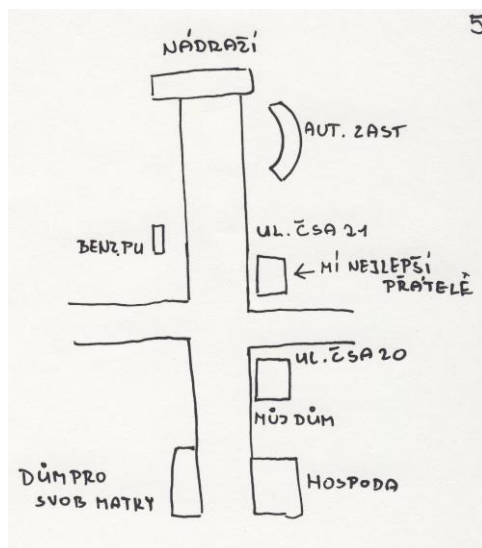 5
NÁDRAŽÍ
AUT. ZAST
UL. ČSA 21
BENZ. PU
← MÍ NEJLEPŠÍ
PŘÁTELĚ
UL. ČSA 20
MŮJ DŮM
DŮM PRO
SVOB MATKY
HOSPODA